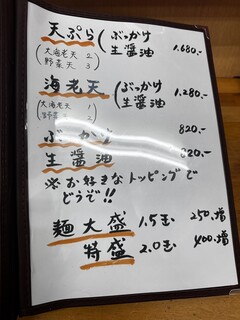 天ぷら(ぶっかけ 生醤油 1.680.-
(大海老天 2
野菜天 3)
海老天(ぶっかけ 生醤油 1.280.-
(大海老天 1
野菜天 2)
ぶっかけ 820.-
生醤油 820.-
※お好きなトッピングで
どうぞ!!
麺大盛 1.5玉 250.増
特盛 2.0玉 400.増